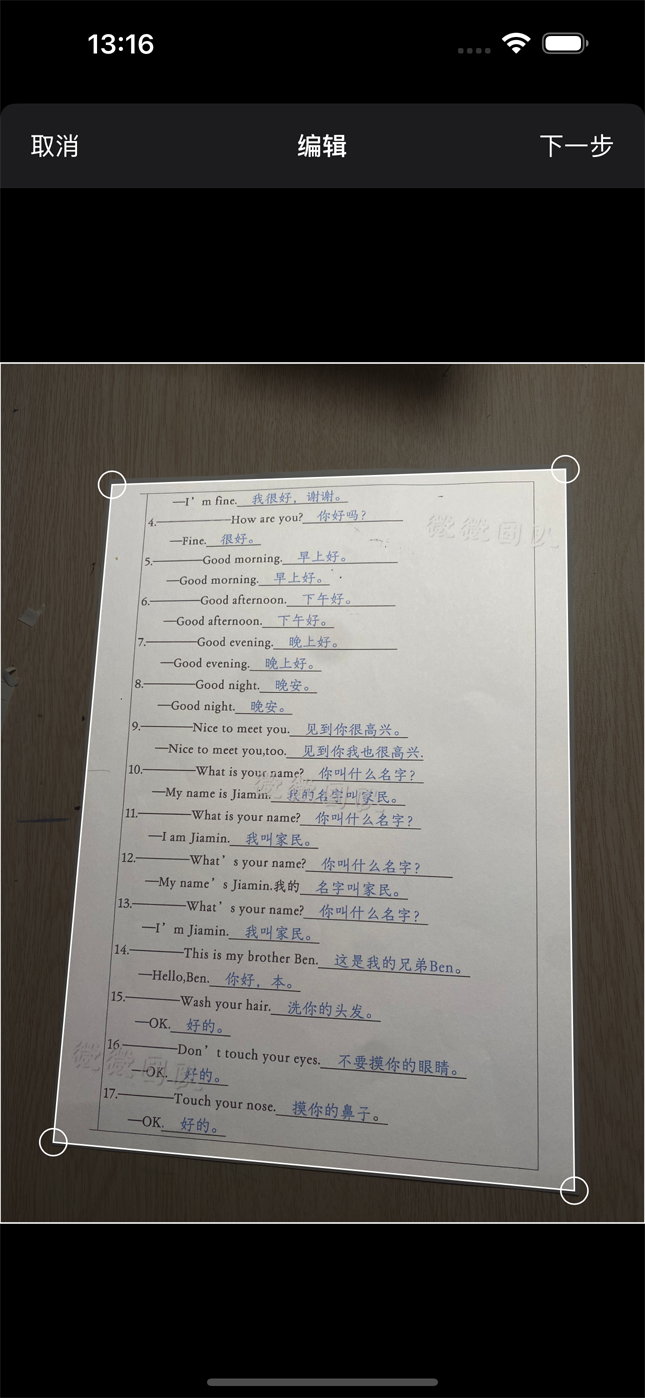 13:16
取消 编辑 下一步
—I’m fine. 我很好，谢谢。
4.————How are you? 你好吗？
—Fine. 很好。
5.————Good morning. 早上好。
—Good morning. 早上好。
6.————Good afternoon. 下午好。
—Good afternoon. 下午好。
7.————Good evening. 晚上好。
—Good evening. 晚上好。
8.————Good night. 晚安。
—Good night. 晚安。
9.————Nice to meet you. 见到你很高兴。
—Nice to meet you,too. 见到你我也很高兴.
10.————What is your name? 你叫什么名字？
—My name is Jiamin. 我的名字叫家民。
11.————What is your name? 你叫什么名字？
—I am Jiamin. 我叫家民。
12.————What’s your name? 你叫什么名字？
—My name’s Jiamin.我的 名字叫家民。
13.————What’s your name? 你叫什么名字？
—I’m Jiamin. 我叫家民。
14.————This is my brother Ben. 这是我的兄弟Ben。
—Hello,Ben. 你好，本。
15.————Wash your hair. 洗你的头发。
—OK. 好的。
16.————Don’t touch your eyes. 不要摸你的眼睛。
—OK. 好的。
17.————Touch your nose. 摸你的鼻子。
—OK. 好的。
微微团队
微微团队
微微团队